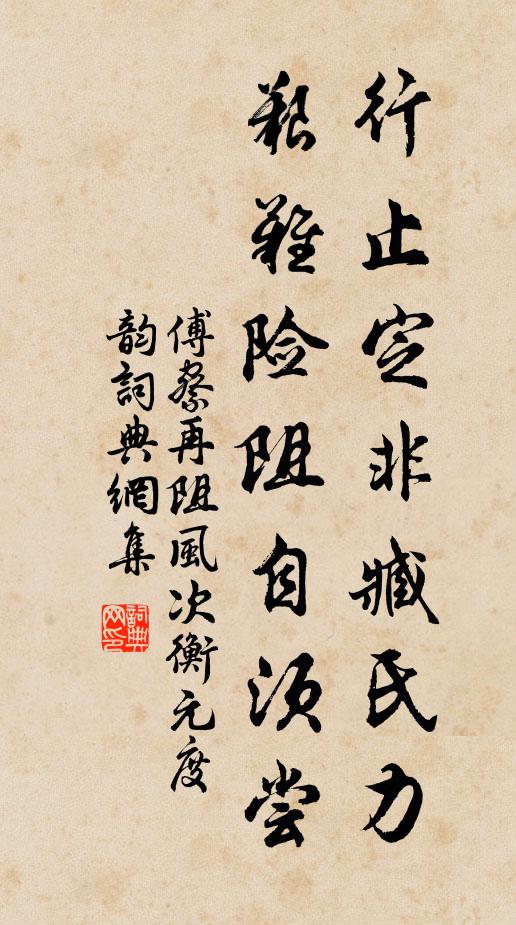 行止定非臧氏力
艱難险阻自须尝
傅察再阻風次衡元度
韵詞典網集
詞典网印